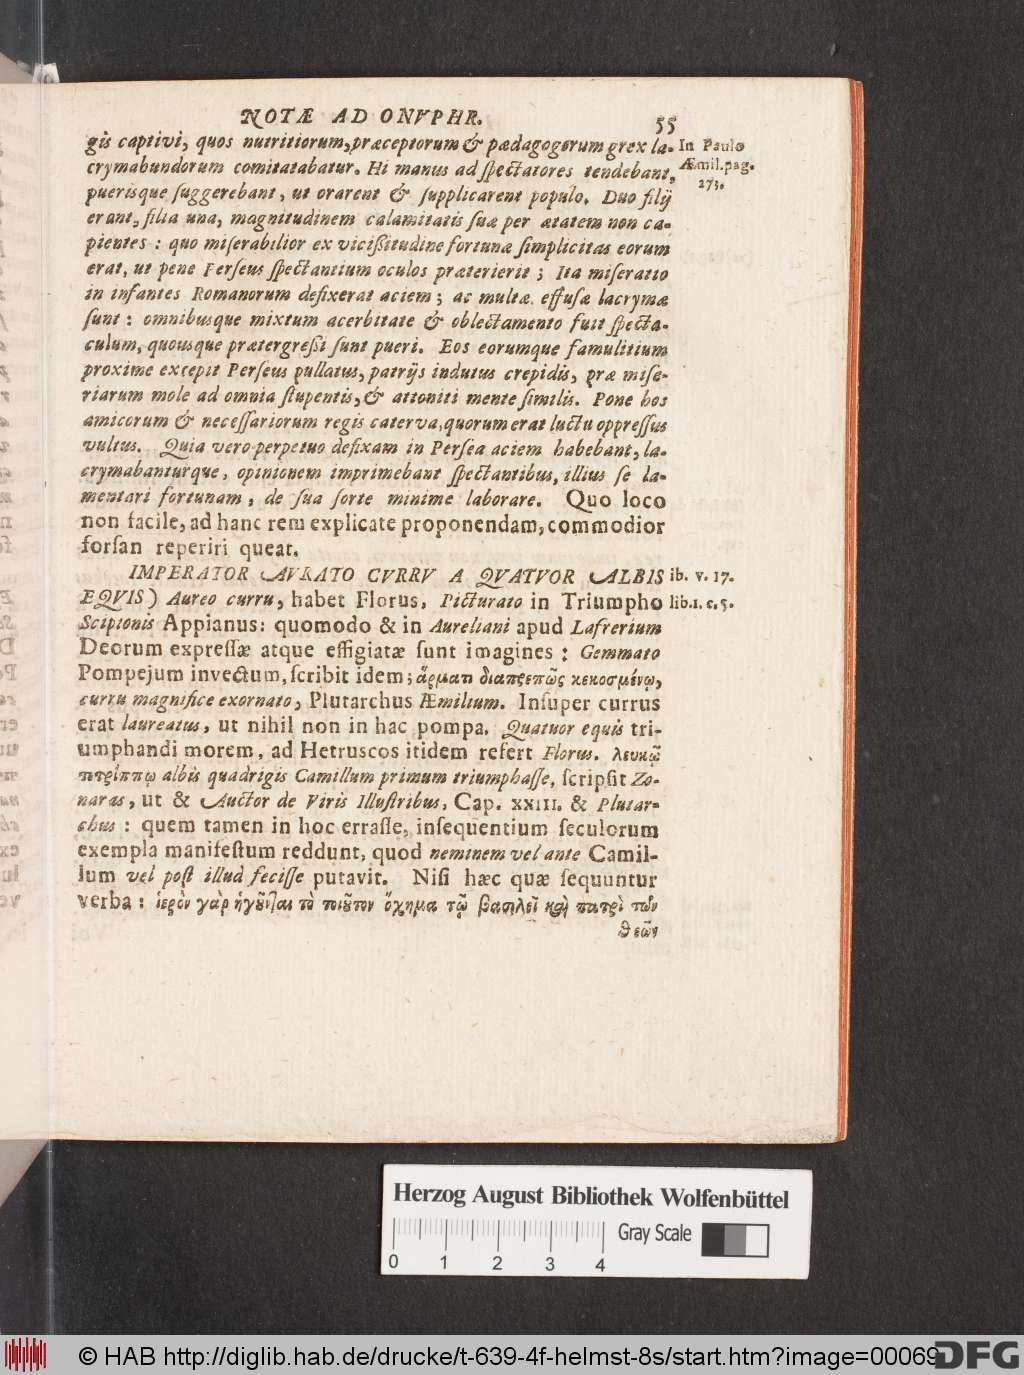 NOTÆ AD ONVPHR. 55
gis captivi, quos nutritiorum, præceptorum & pædagogorum grex la-
crymabundorum comitatabatur. Hi manus ad spectatores tendebant,
puerisque suggerebant, ut orarent & supplicarent populo. Duo filij
erant, filia una, magnitudinem calamitatis suæ per ætatem non ca-
pientes : quo miserabilior ex vicißitudine fortunæ simplicitas eorum
erat, ut pene Perseus spectantium oculos præterierit ; Ita miseratio
in infantes Romanorum defixerat aciem ; ac multæ effusæ lacrymæ
sunt : omnibusque mixtum acerbitate & oblectamento fuit specta-
culum, quousque prætergreßi sunt pueri. Eos eorumque famulitium
proxime excepit Perseus pullatus, patrijs indutus crepidis, præ mise-
riarum mole ad omnia stupentis, & attoniti mente similis. Pone hos
amicorum & necessariorum regis caterva, quorum erat luctu oppressus
vultus. Quia vero perpetuo defixam in Persea aciem habebant, la-
crymabanturque, opinionem imprimebant spectantibus, illius se la-
mentari fortunam, de sua sorte minime laborare. Quo loco
non facile, ad hanc rem explicate proponendam, commodior
forsan reperiri queat.
In Paulo
Æmil. pag.
273.
IMPERATOR AVRATO CVRRV A QVATVOR ALBIS
EQVIS) Aureo curru, habet Florus, Picturato in Triumpho
Scipionis Appianus: quomodo & in Aureliani apud Lafrerium
Deorum expressæ atque effigiatæ sunt imagines : Gemmato
Pompejum invectum, scribit idem; ἅρματι διαπρεπῶς κεκοσμένῳ,
curru magnifice exornato, Plutarchus Æmilium. Insuper currus
erat laureatus, ut nihil non in hac pompa. Quatuor equis tri-
umphandi morem, ad Hetruscos itidem refert Florus. λευκῷ
τετρίππῳ albis quadrigis Camillum primum triumphasse, scripsit Zo-
naras, ut & Auctor de Viris Illustribus, Cap. XXIII. & Plutar-
chus : quem tamen in hoc errasse, insequentium seculorum
exempla manifestum reddunt, quod neminem vel ante Camil-
lum vel post illud fecisse putavit. Nisi hæc quæ sequuntur
verba : ἱερὸν γὰρ ἡγοῦνται τὸ τοιοῦτον ὄχημα τῷ βασιλεῖ καὶ πατρὶ τῶν
θεῶν
ib. v. 17.
lib. 1. c. 5.
Herzog August Bibliothek Wolfenbüttel
0 1 2 3 4
Gray Scale
© HAB http://diglib.hab.de/drucke/t-639-4f-helmst-8s/start.htm?image=00069
DFG